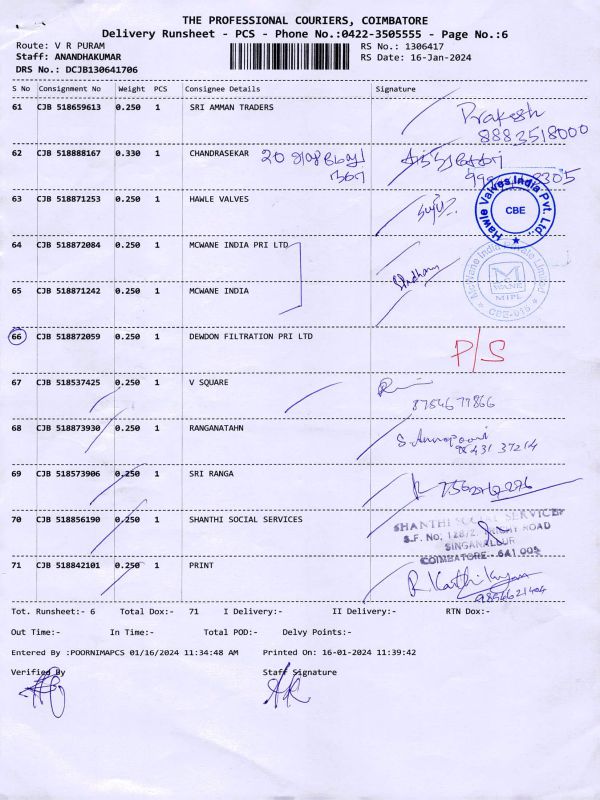 THE PROFESSIONAL COURIERS, COIMBATORE
Delivery Runsheet - PCS - Phone No.:0422-3505555 - Page No.:6
Route: V R PURAM
RS No.: 1306417
Staff: ANANDHAKUMAR
RS Date: 16-Jan-2024
DRS No.: DCJB130641706
S No Consignment No Weight PCS Consignee Details Signature
61 CJB 518659613 0.250 1 SRI AMMAN TRADERS Prakash
8883518000
62 CJB 518888167 0.330 1 CHANDRASEKAR 20
63 CJB 518871253 0.250 1 HAWLE VALVES
Hawle Valves India Pvt. Ltd.
CBE
64 CJB 518872084 0.250 1 MCWANE INDIA PRI LTD
McWane India Private Limited
M
WANE
MIPL
CBE-015
65 CJB 518871242 0.250 1 MCWANE INDIA
66 CJB 518872059 0.250 1 DEWDON FILTRATION PRI LTD P/S
67 CJB 518537425 0.250 1 V SQUARE
8754677866
68 CJB 518873930 0.250 1 RANGANATAHN S. Annapoorni
69 CJB 518573906 0.250 1 SRI RANGA
70 CJB 518856190 0.250 1 SHANTHI SOCIAL SERVICES
SHANTHI SOCIAL SERVICES
S.F. No. 128/2, TRICHY ROAD
SINGANALLUR
COIMBATORE - 641 005
71 CJB 518842101 0.250 1 PRINT R Karthikeyan
Tot. Runsheet:- 6 Total Dox:- 71 I Delivery:- II Delivery:- RTN Dox:-
Out Time:- In Time:- Total POD:- Delvy Points:-
Entered By :POORNIMAPCS 01/16/2024 11:34:48 AM Printed On: 16-01-2024 11:39:42
Verified By Staff Signature